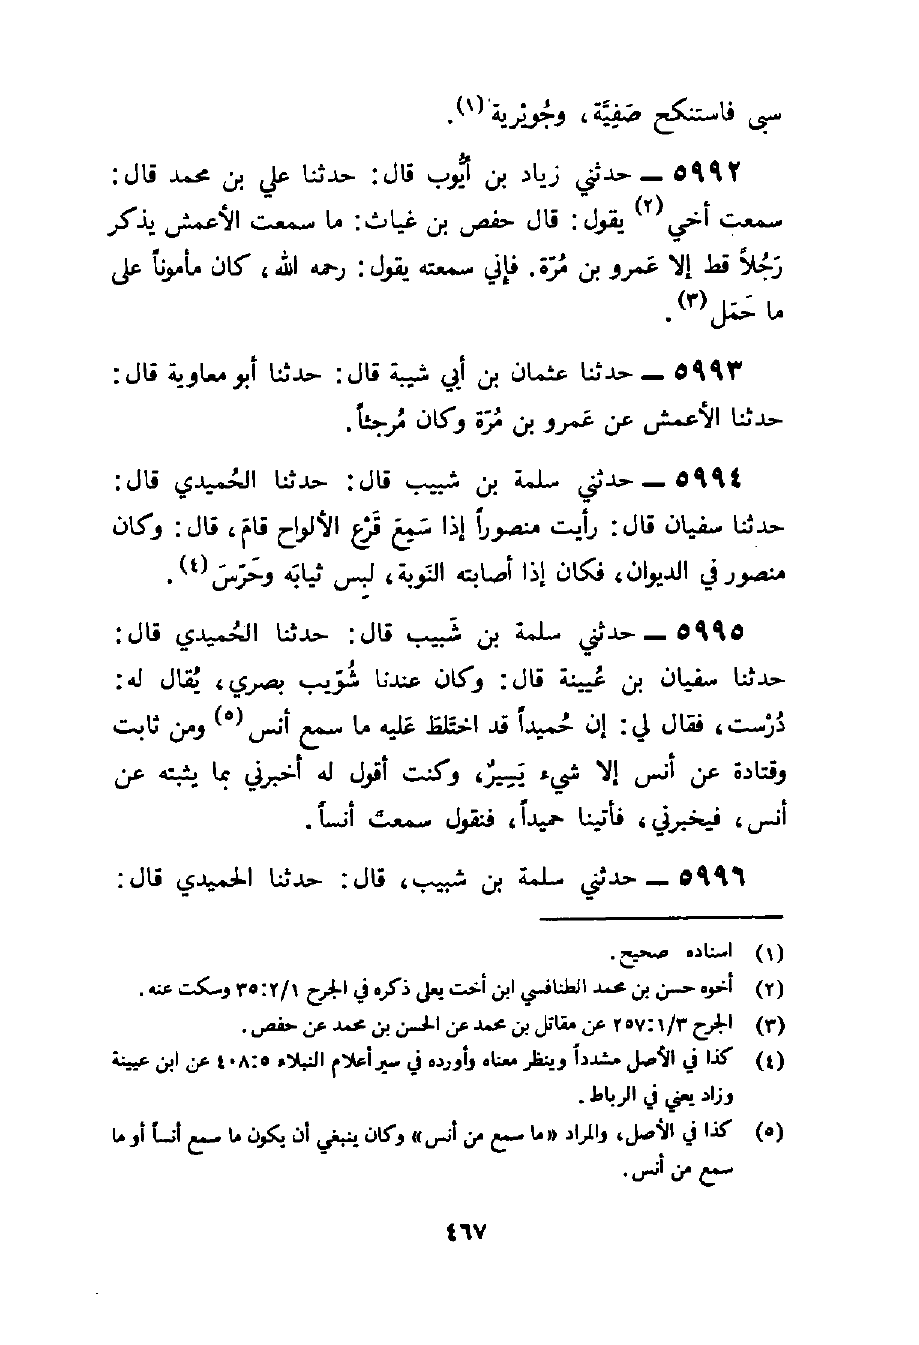 سبى فاستنكح صَفِيَّة، وجُوَيْرية(١).
٥٩٩٢ — حدثني زياد بن أيُّوب قال: حدثنا علي بن محمد قال:
سمعت أخي(٢) يقول: قال حفص بن غياث: ما سمعت الأعمش يذكر
رَجُلاً قط إلا عَمرو بن مُرّة. فإني سمعته يقول: رحمه الله، كان مأموناً على
ما حَمَل(٣).
٥٩٩٣ — حدثنا عثمان بن أبي شيبة قال: حدثنا أبو معاوية قال:
حدثنا الأعمش عن عَمرو بن مُرّة وكان مُرجئاً.
٥٩٩٤ — حدثني سلمة بن شبيب قال: حدثنا الحُميدي قال:
حدثنا سفيان قال: رأيت منصوراً إذا سَمِعَ قَرْع الألواح قامَ، قال: وكان
منصور في الديوان، فكان إذا أصابته النَوبة، لبِس ثيابَه وحَرّسَ(٤).
٥٩٩٥ — حدثني سلمة بن شَبيب قال: حدثنا الحُميدي قال:
حدثنا سفيان بن عُيينة قال: وكان عندنا شُوَيب بصري، يُقال له:
دُرُست، فقال لي: إن حُميداً قد اختَلَطَ عَليه ما سمع أنس(٥) ومن ثابت
وقتادة عن أنس إلا شيء يَسِيرٌ، وكنت أقول له أخبرني بما يثبته عن
أنس، فيخبرني، فأتينا حميداً، فنقول سمعتَ أنساً.
٥٩٩٦ — حدثني سلمة بن شبيب، قال: حدثنا الحميدي قال:
(١) اسناده صحيح.
(٢) أخوه حسن بن محمد الطنافسي ابن أخت يعلى ذكره في الجرح ٣٥:٢/١ وسكت عنه.
(٣) الجرح ٢٥٧:١/٣ عن مقاتل بن محمد عن الحسن بن محمد عن حفص.
(٤) كذا في الأصل مشدداً وينظر معناه وأورده في سير أعلام النبلاء ٤٠٨:٥ عن ابن عيينة
وزاد يعني في الرباط.
(٥) كذا في الأصل، والمراد «ما سمع من أنس» وكان ينبغي أن يكون ما سمع أنساً أو ما
سمع من أنس.
٤٦٧